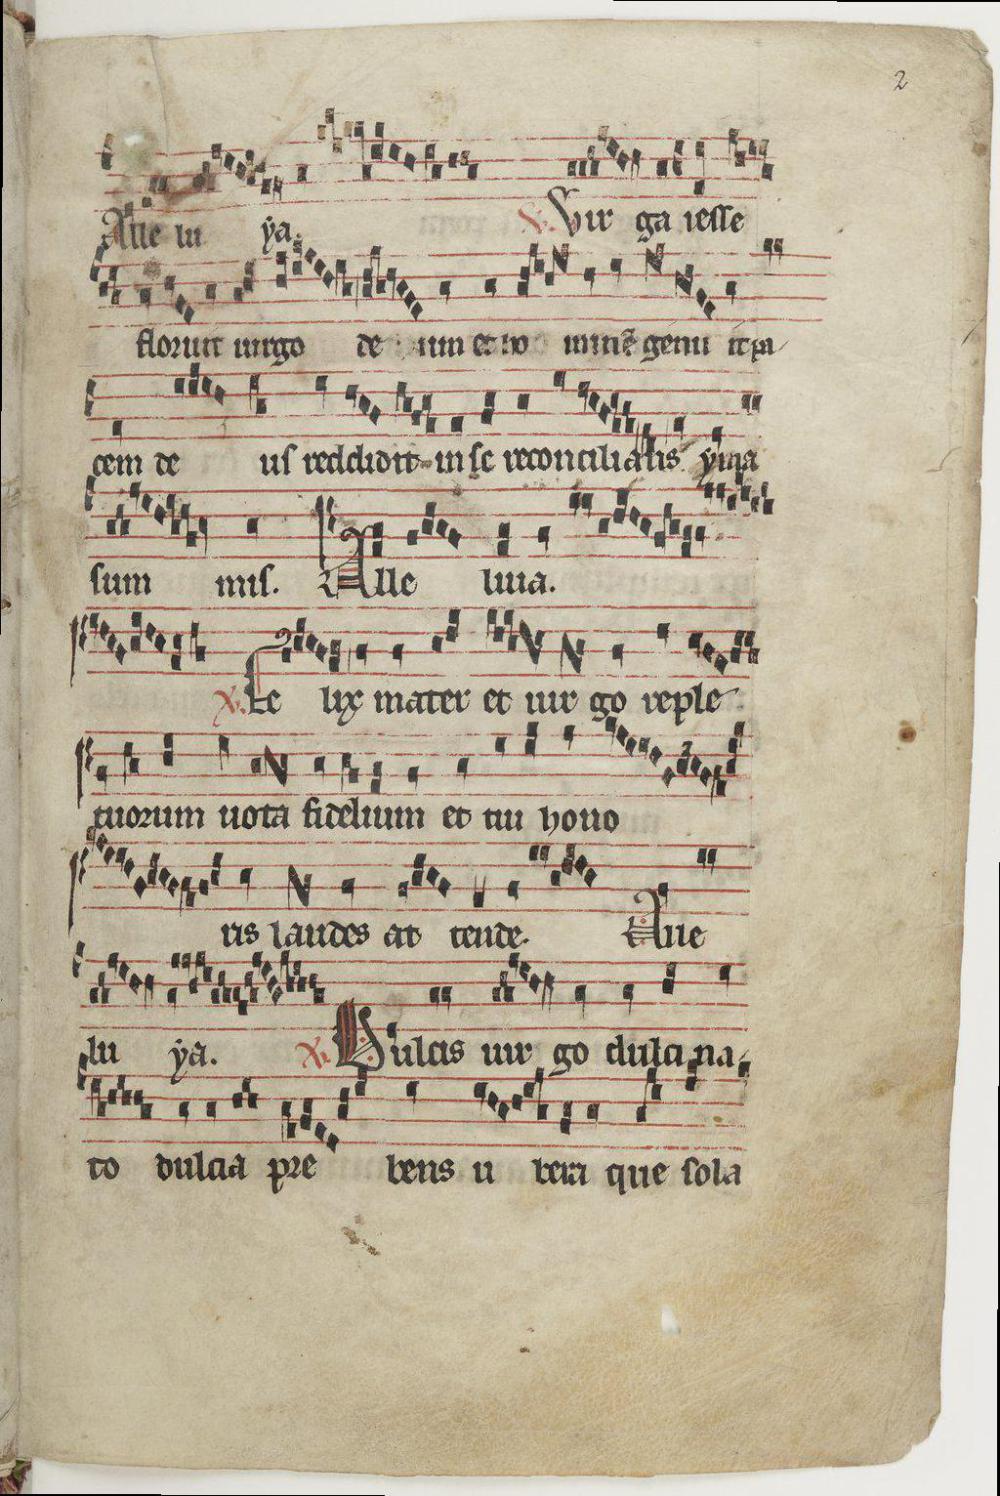 2
Alle lu ya. V. Vir ga iesse
floruit uirgo de um et ho minē genu it pa
cem de us reddidit in se reconcilians yma
sum mis. Alle luia.
V. Fe lix mater et uir go reple
tuorum uota fidelium et tui hono
ris laudes at tende. Alle
lu ya. V. Dulcis uir go dulci na
to dulcia pre bens u bera que sola